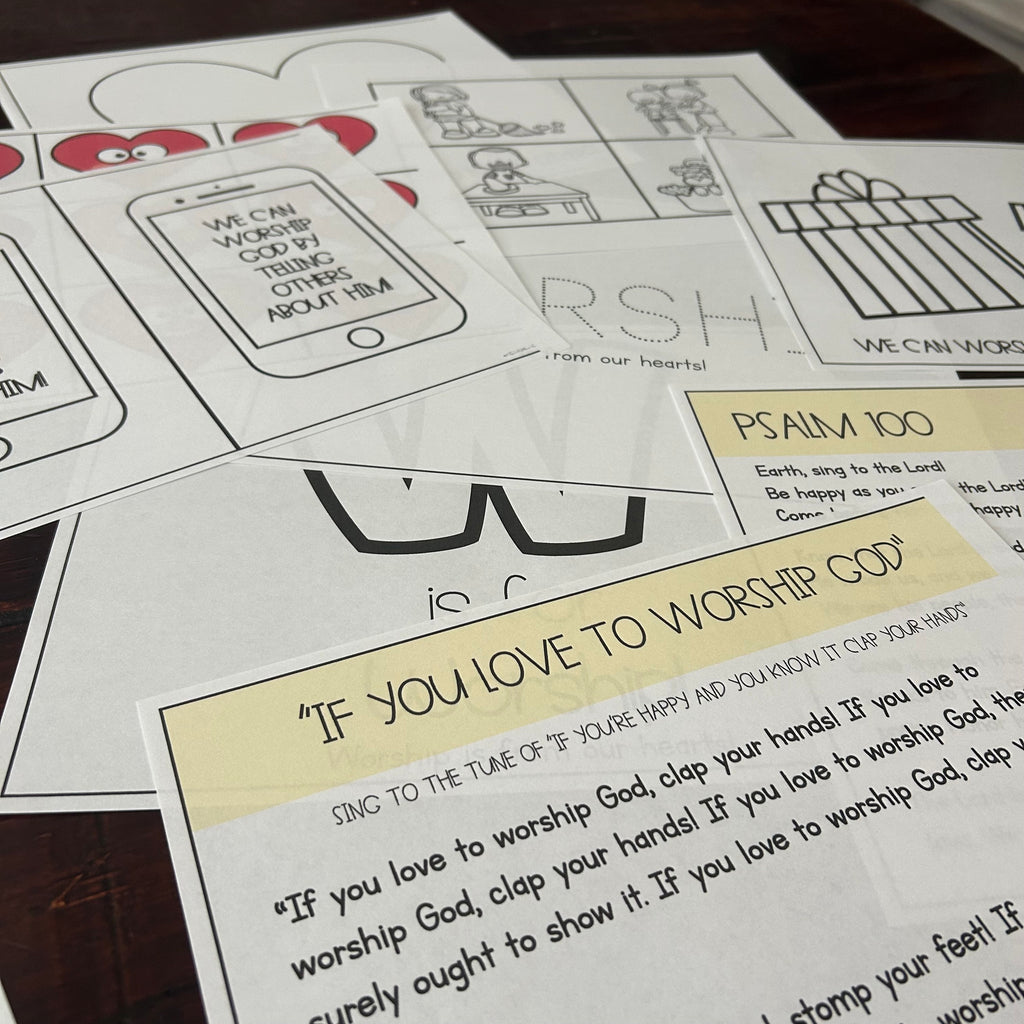 WE CAN
WORSHIP
GOD BY
TELLING
OTHERS
ABOUT HIM!
HIM!
RSH
from our hearts!
WE CAN WORS
PSALM 100
Earth, sing to the Lord!
Be happy as you
the Lord
Come
happy
W
is for
Worship!
Worship is from our hearts!
"IF YOU LOVE TO WORSHIP GOD"
SING TO THE TUNE OF "IF YOU'RE HAPPY AND YOU KNOW IT CLAP YOUR HANDS"
"If you love to worship God, clap your hands! If you love to
worship God, clap your hands! If you love to worship God, the
surely ought to show it. If you love to worship God, clap y
stomp your feet! If
worship